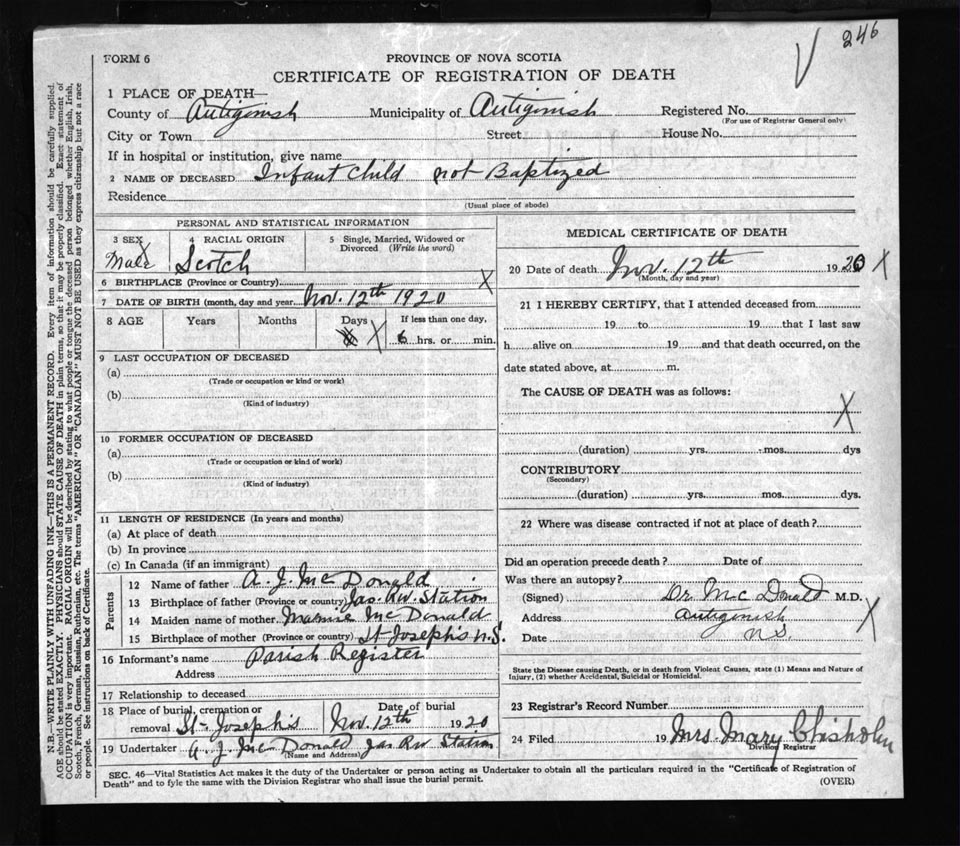 246
FORM 6
PROVINCE OF NOVA SCOTIA
CERTIFICATE OF REGISTRATION OF DEATH
1 PLACE OF DEATH—
County of Antigonish Municipality of Antigonish Registered No.
(For use of Registrar General only)
City or Town Street House No.
If in hospital or institution, give name
2 NAME OF DECEASED Infant Child not Baptized
Residence
(Usual place of abode)
PERSONAL AND STATISTICAL INFORMATION
3 SEX 4 RACIAL ORIGIN 5 Single, Married, Widowed or
Divorced (Write the word)
Male Scotch
6 BIRTHPLACE (Province or Country) X
7 DATE OF BIRTH (month, day and year Nov. 12th 1920
8 AGE Years Months Days If less than one day,
X 6 hrs. or min.
9 LAST OCCUPATION OF DECEASED
(a)
(Trade or occupation or kind or work)
(b)
(Kind of industry)
10 FORMER OCCUPATION OF DECEASED
(a)
(Trade or occupation or kind of work)
(b)
(Kind of industry)
11 LENGTH OF RESIDENCE (In years and months)
(a) At place of death
(b) In province
(c) In Canada (if an immigrant)
Parents
12 Name of father A. J. McDonald
13 Birthplace of father (Province or country) Jas. Rv. Station
14 Maiden name of mother Mamie McDonald
15 Birthplace of mother (Province or country) St Joseph's N.S.
16 Informant's name Parish Register
Address
17 Relationship to deceased
18 Place of burial, cremation or Date of burial
removal St Joseph's Nov. 12th 1920
19 Undertaker A. J. McDonald Jas Rv Station
(Name and Address)
MEDICAL CERTIFICATE OF DEATH
20 Date of death Nov. 12th 1920 X
(Month, day and year)
21 I HEREBY CERTIFY, that I attended deceased from
19 to 19 that I last saw
h alive on 19 and that death occurred, on the
date stated above, at m.
The CAUSE OF DEATH was as follows:
X
(duration) yrs. mos. dys
CONTRIBUTORY
(Secondary)
(duration) yrs. mos. dys.
22 Where was disease contracted if not at place of death?
Did an operation precede death? Date of
Was there an autopsy?
(Signed) Dr McDonald M.D.
Address Antigonish X
Date N.S.
State the Disease causing Death, or in death from Violent Causes, state (1) Means and Nature of
Injury, (2) whether Accidental, Suicidal or Homicidal.
23 Registrar's Record Number
24 Filed 19 Mrs Mary Chisholm
Division Registrar
SEC. 46—Vital Statistics Act makes it the duty of the Undertaker or person acting as Undertaker to obtain all the particulars required in the "Certificate of Registration of
Death" and to fyle the same with the Division Registrar who shall issue the burial permit.
(OVER)
N.B.—WRITE PLAINLY WITH UNFADING INK—THIS IS A PERMANENT RECORD. Every item of information should be carefully supplied.
AGE should be stated EXACTLY. PHYSICIANS should STATE CAUSE OF DEATH in plain terms, so that it may be properly classified. Exact statement of
OCCUPATION is very important. RACIAL ORIGIN will be described by stating to what people or tongue the deceased person belonged whether English, Irish,
Scotch, French, German, Russian, Ruthenian, etc. The terms "AMERICAN" OR "CANADIAN" MUST NOT BE USED as they express citizenship but not a race
or people. See instructions on back of Certificate.